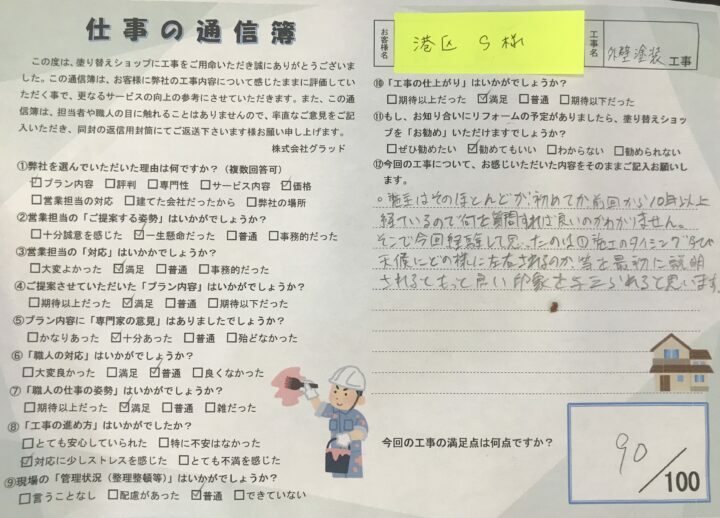 仕事の通信簿
この度は、塗り替えショップに工事をご用命いただき誠にありがとうございま
した。この通信簿は、お客様に弊社の工事内容について感じたままに評価してい
ただく事で、更なるサービスの向上の参考にさせていただきます。また、この通
信簿は、担当者や職人の目に触れることはありませんので、率直なご意見をご記
入いただき、同封の返信用封筒にてご返送下さいます様お願い申し上げます。
株式会社グラッド
①弊社を選んでいただいた理由は何ですか？（複数回答可）
☑プラン内容 □評判 □専門性 □サービス内容 ☑価格
□営業担当の対応 □建てた会社だったから □弊社の場所
②営業担当の「ご提案する姿勢」はいかがでしょうか？
□十分誠意を感じた ☑一生懸命だった □普通 □事務的だった
③営業担当の「対応」はいかがでしょうか？
□大変よかった ☑満足 □普通 □事務的だった
④ご提案させていただいた「プラン内容」はいかがでしょうか？
□期待以上だった ☑満足 □普通 □期待以下だった
⑤プラン内容に「専門家の意見」はありましたでしょうか？
□かなりあった ☑十分あった □普通 □殆どなかった
⑥「職人の対応」はいかがでしょうか？
□大変良かった □満足 ☑普通 □良くなかった
⑦「職人の仕事の姿勢」はいかがでしょうか？
□期待以上だった ☑満足 □普通 □雑だった
⑧「工事の進め方」はいかがでしたか？
□とても安心していられた □特に不安はなかった
☑対応に少しストレスを感じた □とても不満を感じた
⑨現場の「管理状況（整理整頓等）」はいかがでしょうか？
□言うことなし □配慮があった ☑普通 □できていない
お客様名 港区 S様 工事名 外壁塗装工事
⑩「工事の仕上がり」はいかがでしょうか？
□期待以上だった ☑満足 □普通 □期待以下だった
⑪もし、お知り合いにリフォームの予定がありましたら、塗り替えショッ
プを「お勧め」いただけますでしょうか？
□ぜひ勧めたい ☑勧めてもいい □わからない □勧められない
⑫今回の工事について、お感じいただいた内容をそのままご記入お願いし
ます。
。施主はそのほとんどが初めてか前回から10年以上
経ているので何を質問すれば良いのかわかりません。
そこで今回経験して思ったのは①施工のタイミング
天候にどの様に左右されるのか等を最初に説明
されるともっと良い印象を与えられると思います。
今回の工事の満足点は何点ですか？
90/100